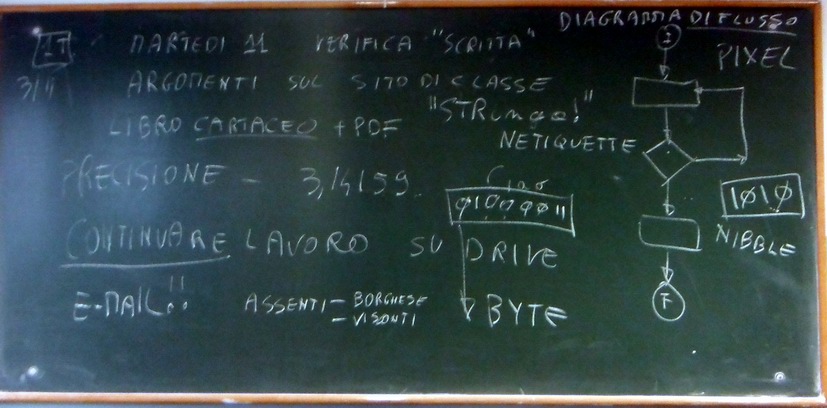 1T MARTEDI 11 VERIFICA "SCRITTA"
3/11 ARGOMENTI SUL SITO DI CLASSE
LIBRO CARTACEO + PDF
"STRINGA!"
NETIQUETTE
PRECISIONE - 3,14159
Ciao
01000011
CONTINUARE LAVORO SU DRIVE
E-MAIL..!!
ASSENTI - BORGHESE
- VISCONTI
BYTE
DIAGRAMMA DI FLUSSO
I
PIXEL
1010
NIBBLE
F